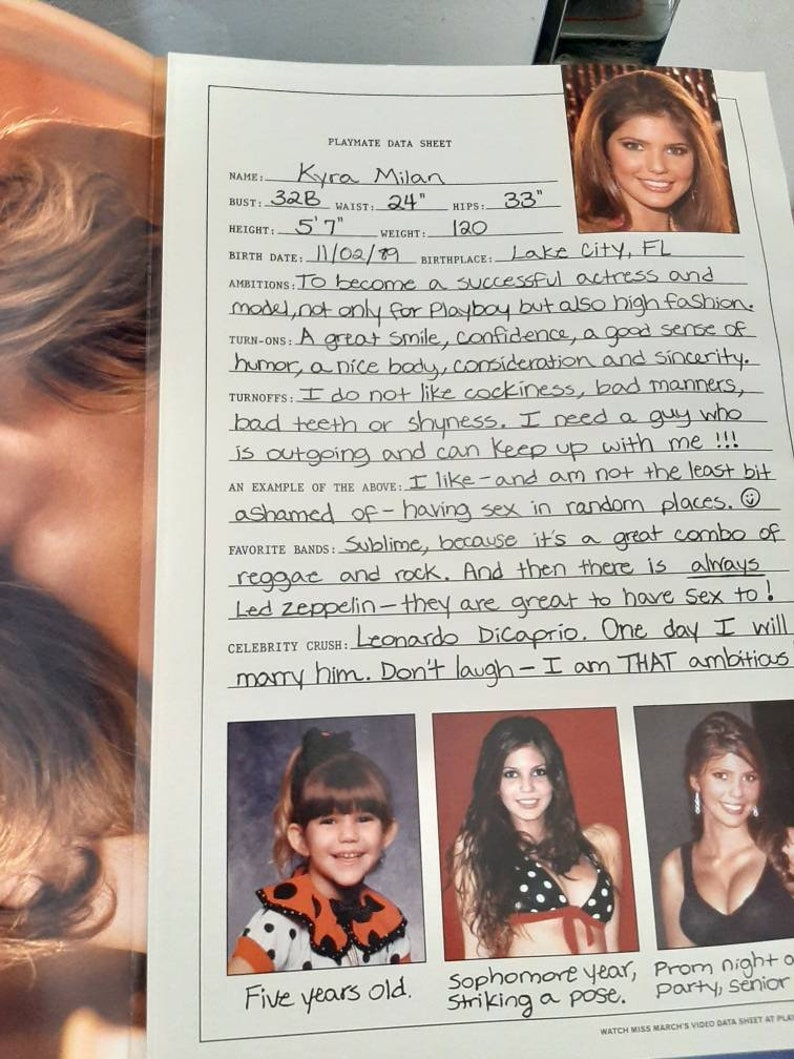 PLAYMATE DATA SHEET
NAME: Kyra Milan
BUST: 32B WAIST: 24" HIPS: 33"
HEIGHT: 5'7" WEIGHT: 120
BIRTH DATE: 11/02/89 BIRTHPLACE: Lake City, FL
AMBITIONS: To become a successful actress and
model, not only for Playboy but also high fashion.
TURN-ONS: A great smile, confidence, a good sense of
humor, a nice body, consideration and sincerity.
TURNOFFS: I do not like cockiness, bad manners,
bad teeth or shyness. I need a guy who
is outgoing and can keep up with me !!!
AN EXAMPLE OF THE ABOVE: I like - and am not the least bit
ashamed of - having sex in random places. ☺
FAVORITE BANDS: Sublime, because it's a great combo of
reggae and rock. And then there is always
Led Zeppelin - they are great to have sex to!
CELEBRITY CRUSH: Leonardo DiCaprio. One day I will
marry him. Don't laugh - I am THAT ambitious!
Five years old.
Sophomore year,
striking a pose.
Prom night
party, senior
WATCH MISS MARCH'S VIDEO DATA SHEET AT